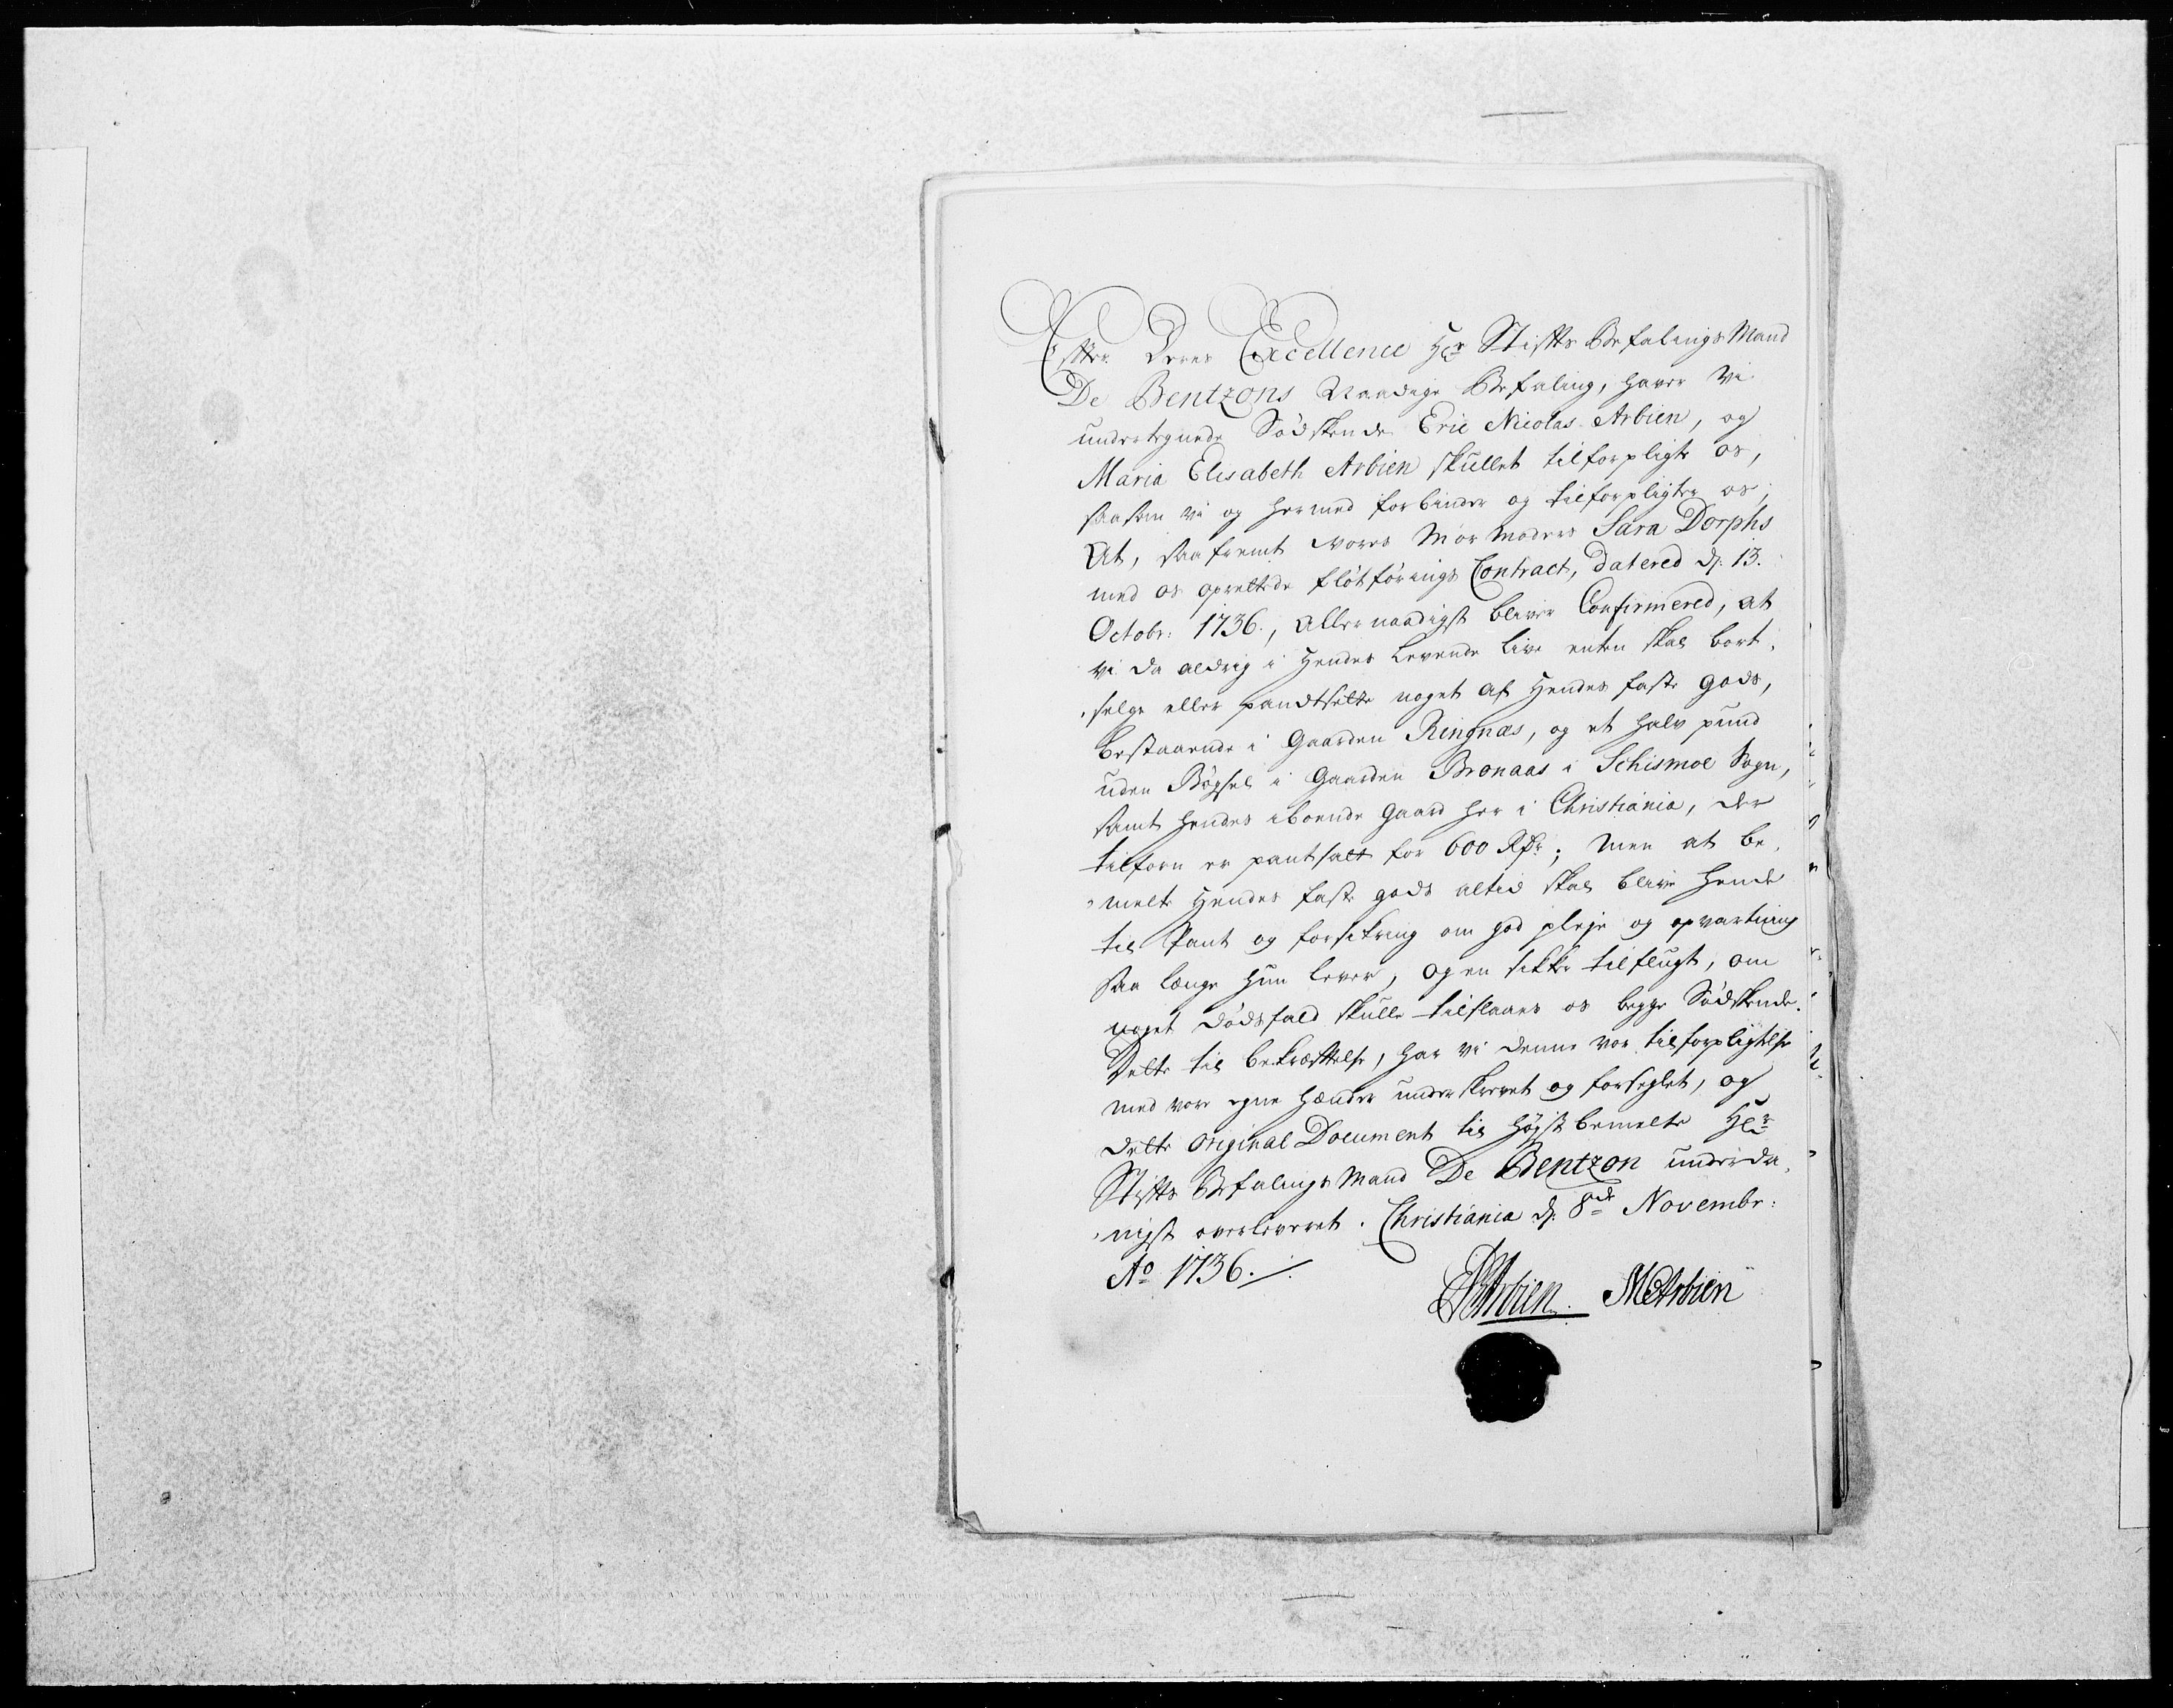 Efter Deres Excellence Hr Stifts Befalings Mand
De Bentzons Naadige Befaling, haver Vi
undertegnede Södskende Eric Nicolas Arbien, og
Maria Elisabeth Arbien skullet tilforpligte os,
saasom vi og hermed forbinder og tilforpligter os,
At, saafremt vores Mor Moders Sara Dorphs
med os oprettede fløtførings Contract, datered d: 13.
Octobr: 1736., Allernaadigst bliver Confirmered, at
vi da aldrig i Hendes Levende live enten skal bort-
selge eller pandtsette noget af Hendes faste gods,
bestaaende i Gaarden Ringnæs, og et halv pund
uden Bøgsel i Gaarden Bronaas i Schismoe Sogn,
samt hendes iboende Gaard her i Christiania, der
tilforn er pantsatt for 600 Rdr; Men at be-
melte Hendes faste gods altid skal blive hende
til Pant og forsikring om god pleje og opvartning
saa længe hun lever, og en sikker tilflugt, om
noget Dødsfald skulle tilslaaes os begge Södskende.
Dette til bekræftelse, har vi denne vor tilforpligtelse
med vore egne hænder underskrevet og forseglet, og
dette original Document til Høyst bemelte Hr
Stifts Befalings Mand De Bentzon underda-
nigst overleveret. Christiania d: 8de Novembr:
Ao 1736.
ENArbien. MEArbien